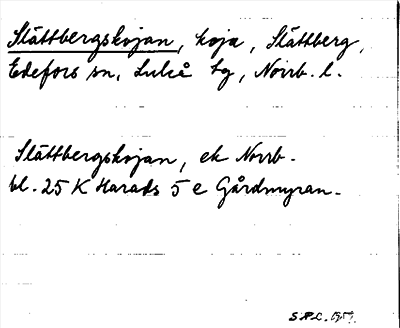 Slättbergskojan, koja, Slättberg,
Edefors sn, Luleå tg, Norrb. l.
Slättbergskojan, ek Norrb.
bl. 25 K Harads 5 e Gårdmyran.